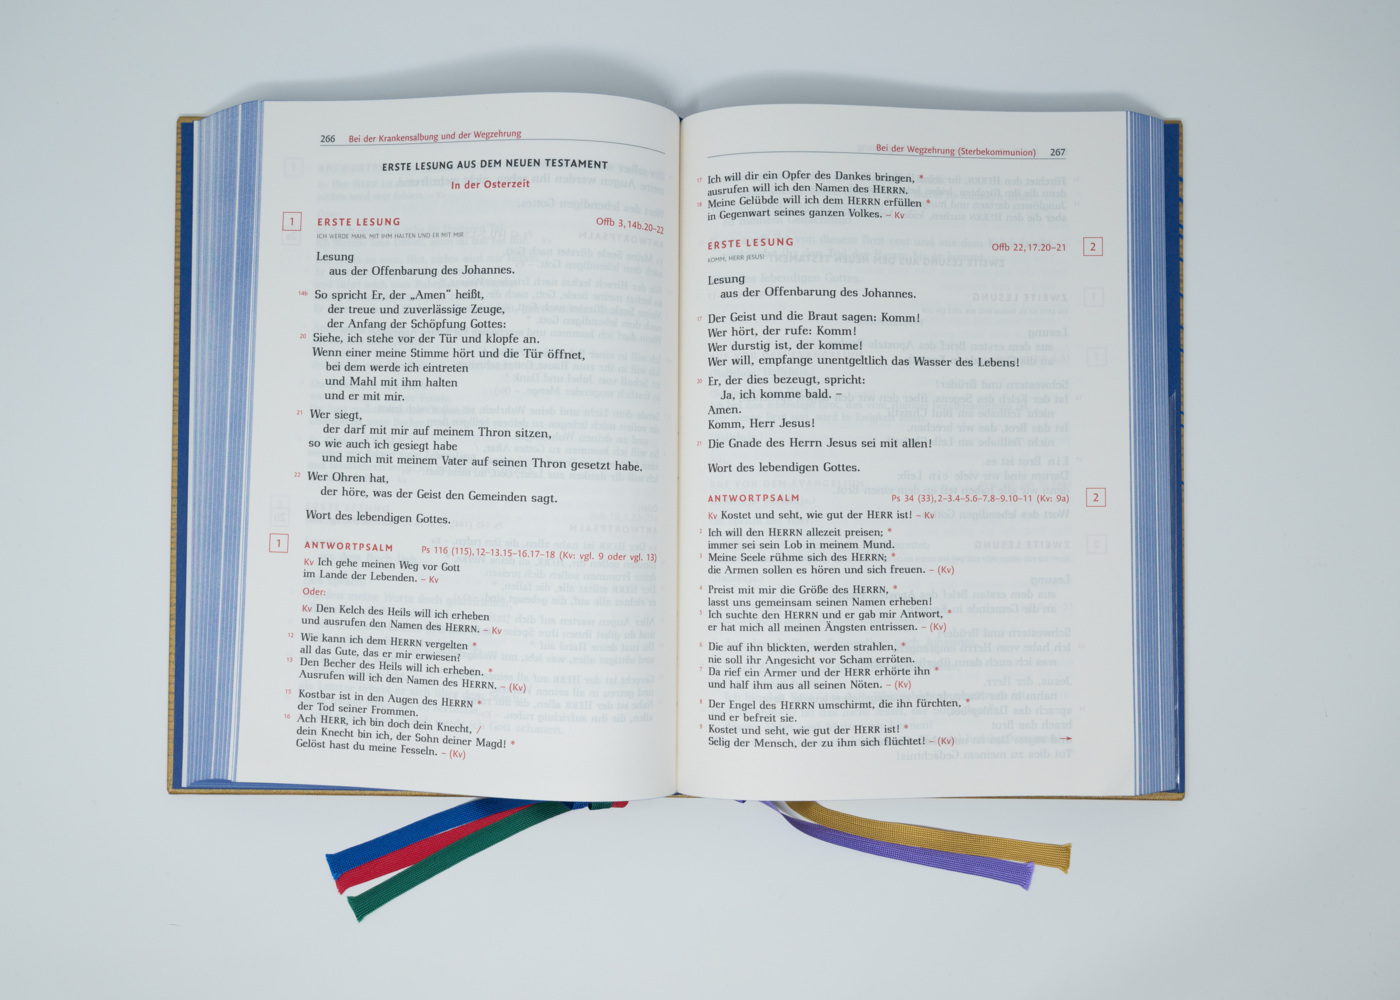 266 Bei der Krankensalbung und der Wegzehrung
ERSTE LESUNG AUS DEM NEUEN TESTAMENT
In der Osterzeit
1 ERSTE LESUNG Offb 3,14b.20–22
ICH WERDE MAHL MIT IHM HALTEN UND ER MIT MIR
Lesung
aus der Offenbarung des Johannes.
14b So spricht Er, der „Amen“ heißt,
der treue und zuverlässige Zeuge,
der Anfang der Schöpfung Gottes:
20 Siehe, ich stehe vor der Tür und klopfe an.
Wenn einer meine Stimme hört und die Tür öffnet,
bei dem werde ich eintreten
und Mahl mit ihm halten
und er mit mir.
21 Wer siegt,
der darf mit mir auf meinem Thron sitzen,
so wie auch ich gesiegt habe
und mich mit meinem Vater auf seinen Thron gesetzt habe.
22 Wer Ohren hat,
der höre, was der Geist den Gemeinden sagt.
Wort des lebendigen Gottes.
1 ANTWORTPSALM Ps 116 (115),12–13.15–16.17–18 (Kv: vgl. 9 oder vgl. 13)
Kv Ich gehe meinen Weg vor Gott
im Lande der Lebenden. – Kv
Oder:
Kv Den Kelch des Heils will ich erheben
und ausrufen den Namen des HERRN. – Kv
12 Wie kann ich dem HERRN vergelten *
all das Gute, das er mir erwiesen?
13 Den Becher des Heils will ich erheben. *
Ausrufen will ich den Namen des HERRN. – (Kv)
15 Kostbar ist in den Augen des HERRN *
der Tod seiner Frommen.
16 Ach HERR, ich bin doch dein Knecht, /
dein Knecht bin ich, der Sohn deiner Magd! *
Gelöst hast du meine Fesseln. – (Kv)
Bei der Wegzehrung (Sterbekommunion) 267
17 Ich will dir ein Opfer des Dankes bringen, *
ausrufen will ich den Namen des HERRN.
18 Meine Gelübde will ich dem HERRN erfüllen *
in Gegenwart seines ganzen Volkes. – Kv
ERSTE LESUNG Offb 22,17.20–21 2
KOMM, HERR JESUS!
Lesung
aus der Offenbarung des Johannes.
17 Der Geist und die Braut sagen: Komm!
Wer hört, der rufe: Komm!
Wer durstig ist, der komme!
Wer will, empfange unentgeltlich das Wasser des Lebens!
20 Er, der dies bezeugt, spricht:
Ja, ich komme bald. –
Amen.
Komm, Herr Jesus!
21 Die Gnade des Herrn Jesus sei mit allen!
Wort des lebendigen Gottes.
ANTWORTPSALM Ps 34 (33),2–3.4–5.6–7.8–9.10–11 (Kv: 9a) 2
Kv Kostet und seht, wie gut der HERR ist! – Kv
2 Ich will den HERRN allezeit preisen; *
immer sei sein Lob in meinem Mund.
3 Meine Seele rühme sich des HERRN; *
die Armen sollen es hören und sich freuen. – (Kv)
4 Preist mit mir die Größe des HERRN, *
lasst uns gemeinsam seinen Namen erheben!
5 Ich suchte den HERRN und er gab mir Antwort, *
er hat mich all meinen Ängsten entrissen. – (Kv)
6 Die auf ihn blickten, werden strahlen, *
nie soll ihr Angesicht vor Scham erröten.
7 Da rief ein Armer und der HERR erhörte ihn *
und half ihm aus all seinen Nöten. – (Kv)
8 Der Engel des HERRN umschirmt, die ihn fürchten, *
und er befreit sie.
9 Kostet und seht, wie gut der HERR ist! *
Selig der Mensch, der zu ihm sich flüchtet! – (Kv) →